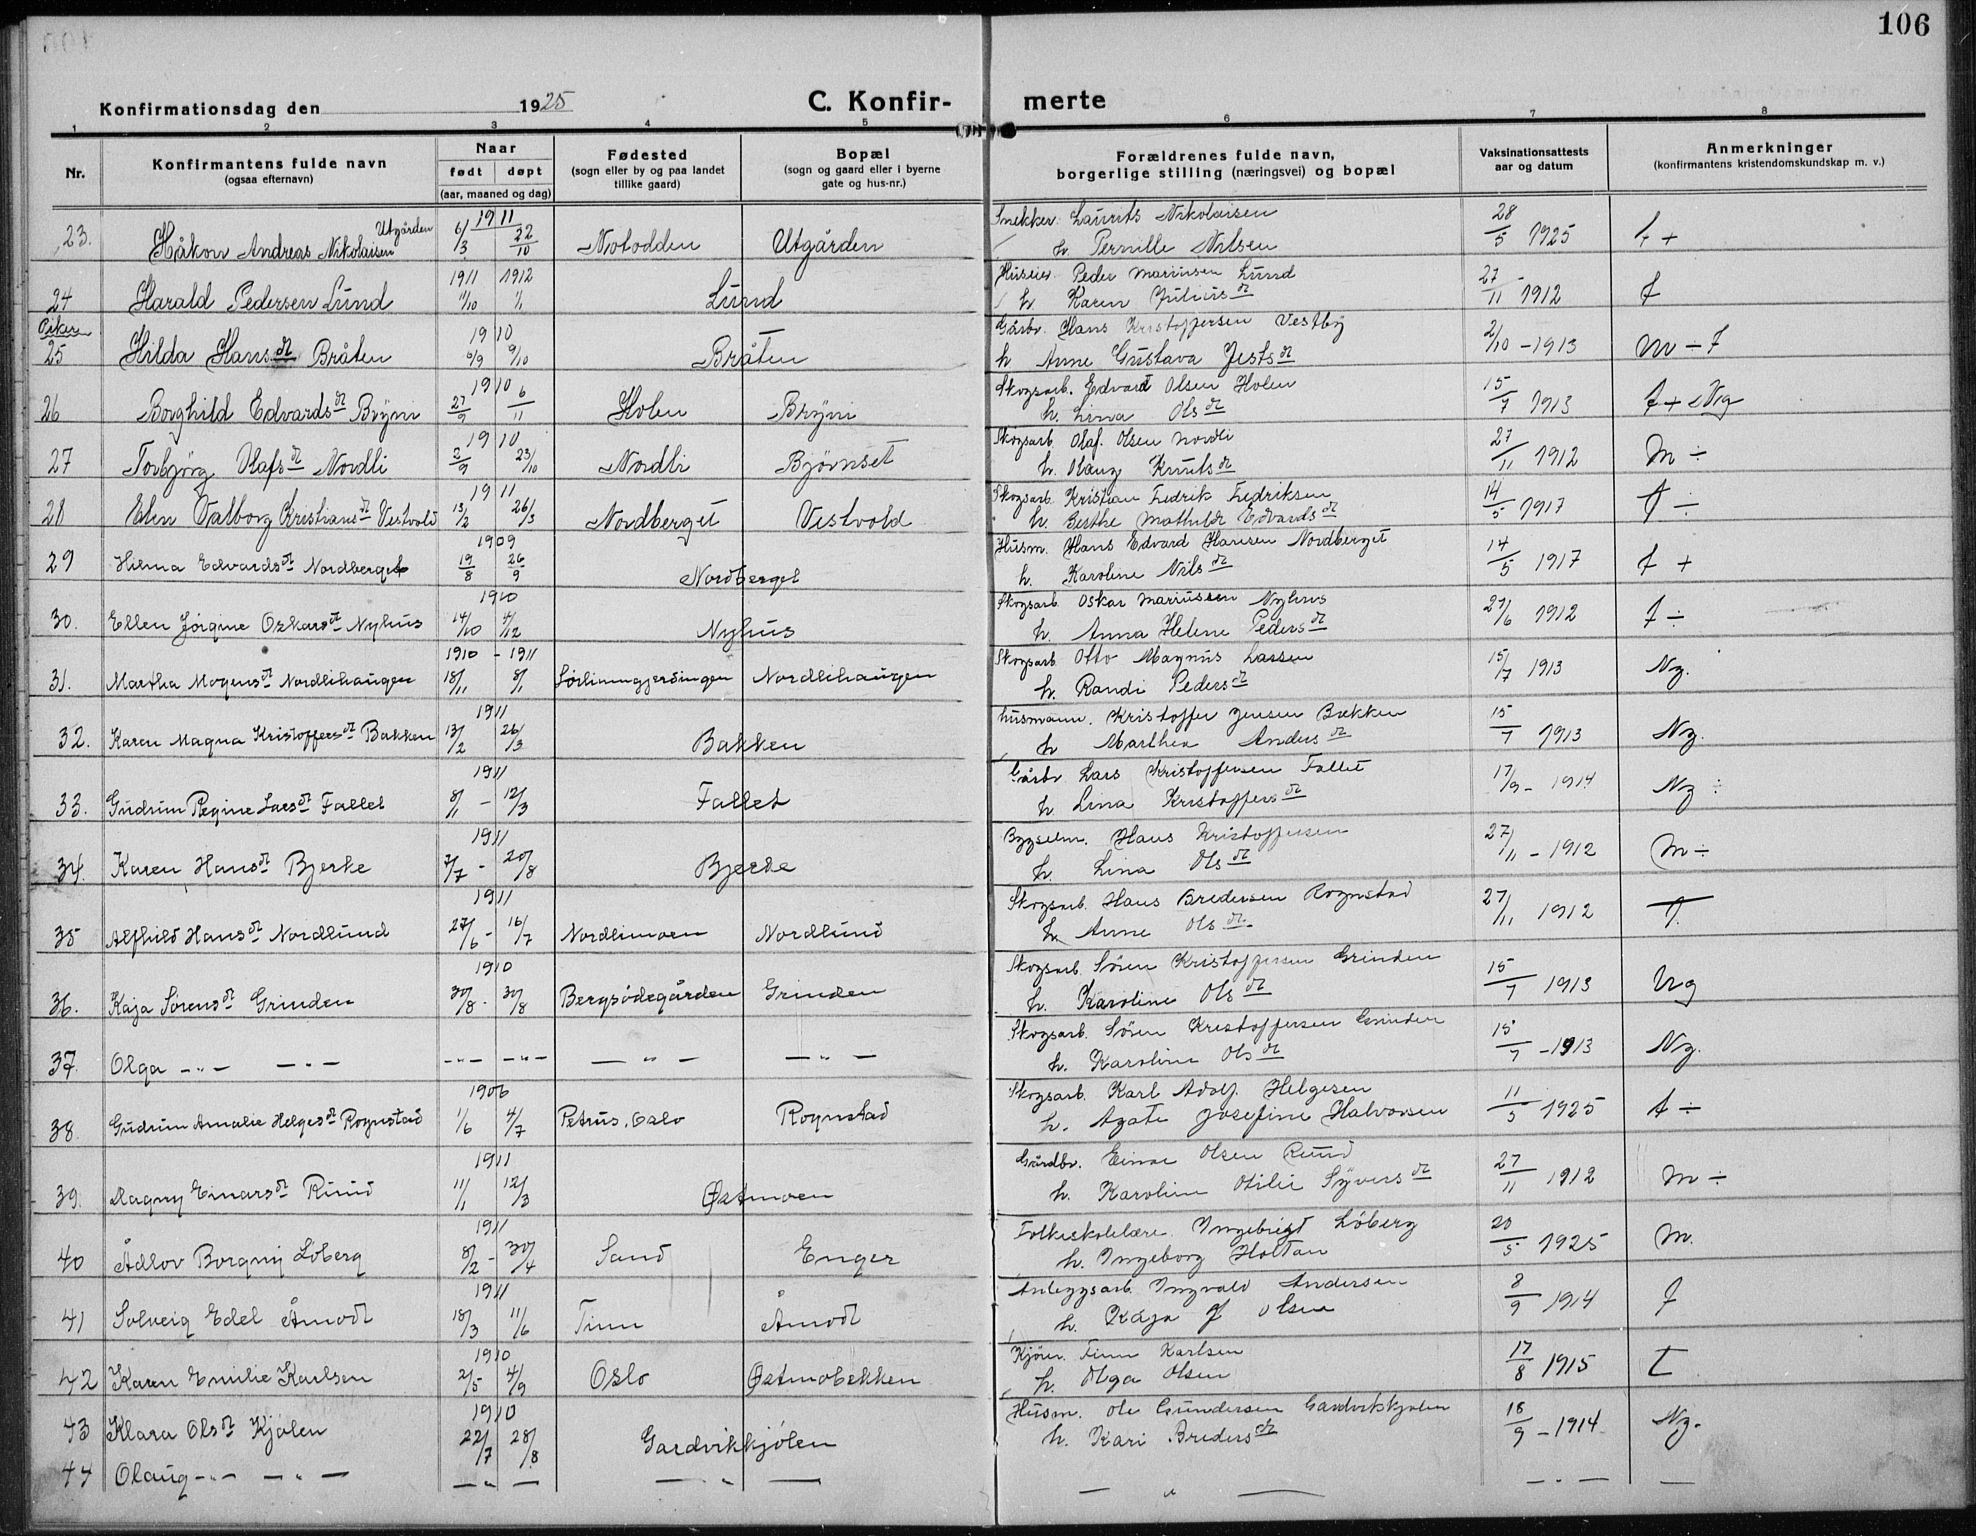 106
Konfirmationsdag den 1925 C. Konfir- merte
1 2 3 4 5 6 7 8
Nr. Konfirmantens fulde navn (ogsaa efternavn) Naar født døpt (aar, maaned og dag) Fødested (sogn eller by og paa landet tillike gaard) Bopæl (sogn og gaard eller i byerne gate og hus-nr.) Forældrenes fulde navn, borgerlige stilling (næringsvei) og bopæl Vaksinationsattests aar og datum Anmerkninger (konfirmantens kristendomskundskap m. v.)
Utgården 1911 Snekker. Laurits Nikolaisen
23. Håkon Andreas Nikolaisen 6/3 22/10 Notodden Utgården h. Pernille Nilsen 28/5 1925 +
1911 1912 Huseier Peder Mariusen Lund
24 Harald Pedersen Lund 11/10 1/1 Lund h. Karen Julius dt 27/11 1912
Piker
1910 Gårbr. Hans Kristoffersen Vestby
25 Hilda Hans dt Bråten 9/10 Bråten h Anne Gustava dt 2/10 - 1913 m ÷
1910 Skogsarb. Edvard Olsen Holen
26 Borghild Edvards dt Bryni 27/9 6/11 Holen Bryni h. Lina Ols dt 15/7 1913 +
1910 Skogsarb. Olaf Olsen Nordli
27 Torbjørg Olafs dt Nordli 2/9 23/10 Nordli Bjørnset h. Olaug Knuts dt 27/11 1912 M ÷
1911 Skogsarb. Kristian Fedrik Fedriksen
28 Elen Valborg Kristians dt Vestvold 13/2 26/3 Nordberget Vestvold h. Berthe Mathilde Edvards dt 14/5 1917 ÷
1909 Husm. Hans Edvard Hansen Nordberget
29 Hilma Edvards dt Nordberget 19/8 26/9 Nordberget h. Karoline Nils dt 14/5 1917 +
1910 Skogsarb. Oskar Mariussen Nyhus
30. Ellen Jørgine Oskars dt Nyhus 14/10 4/12 Nyhus h. Anna Helene Peders dt 27/6 1912 ÷
1910 - 1911 Skogsarb. Otto Magnus Larsen
31. Martha Mogens dt Nordlihaugen 18/11 8/1 Nordlihaugen h. Randi Peders dt 15/7 1913 Ng.
1911 husmann. Kristoffer Jensen Bækken
32. Karen Magna Kristoffers dt Bakken 13/2 26/3 Bakken h Marthea Anders dt 15/7 1913 Ng.
1911 Gårbr. Lars Kristoffersen Fallet
33. Gudrun Regine Lars dt Fallet 8/1 - 12/3 Fallet h. Lina Kristoffers dt 17/9 - 1914 Ng ÷
1911 Bygselm. Hans Kristoffersen
34. Karen Hans dt Bjerke 7/7 - 20/8 Bjerke h. Lina Ols dt 27/11 - 1912 M ÷
1911 Skogsarb. Hans Bredersen Rognstad
35 Alfhild Hans dt Nordlund 27/6 - 16/7 Nordlimoen Nordlund h. Anne Ols dt. 27/11 1912
1910 Skogsarb. Søren Kristoffersen Grinden
36. Kaja Sørens dt Grinden 30/8 Bergsødegården Grinden h. Karoline Ols dt 15/7 1913 Ng
Skogsarb. Søren Kristoffersen Grinden
37. Olga —"— —"— —"— —"— — " — — " — h. Karoline Ols dt 15/7 - 1913 Ng.
1906 Skogsarb. Karl Adolf Helgesen
38. Gudrun Amalie Helges dt Rognstad 1/6 4/7 Petrus, Oslo Rognstad h. Agate Josefine Halvorsen 11/5 1925 ÷
1911 Gårdbr. Einar Olsen Ruud
39. Magny Einars dt Ruud 11/1 12/3 Østmoen h. Karoline Otilie Syvers dt 27/11 1912 M ÷
1911 Folkeskolelære. Ingebrigt Løberg
40 Ådlov Borgny Løberg 8/2 - 30/4 Sand Enger h. Ingeborg Holtan 20/5 1925 M.
1911 Anleggsarb. Ingvald Andersen
41 Solveig Edel Åmodt 18/3 11/6 Tinn Åmodt h. Kaja J Olsen 8/9 1914
1910 Kjører. Finn Karlsen
42 Karen Emilie Karlsen 2/5 4/9 Oslo Østmobekken h. Olga Olsen 17/8 1915
1910 Husm. Ole Gundersen Gardvikskjølen
43 Klara Ols dt Kjølen 22/7 28/8 Gardvikkjølen h. Kari Breders dt 18/9 - 1914 Ng.
44 Olaug —"— —"— —"— — " — — " — —"— —